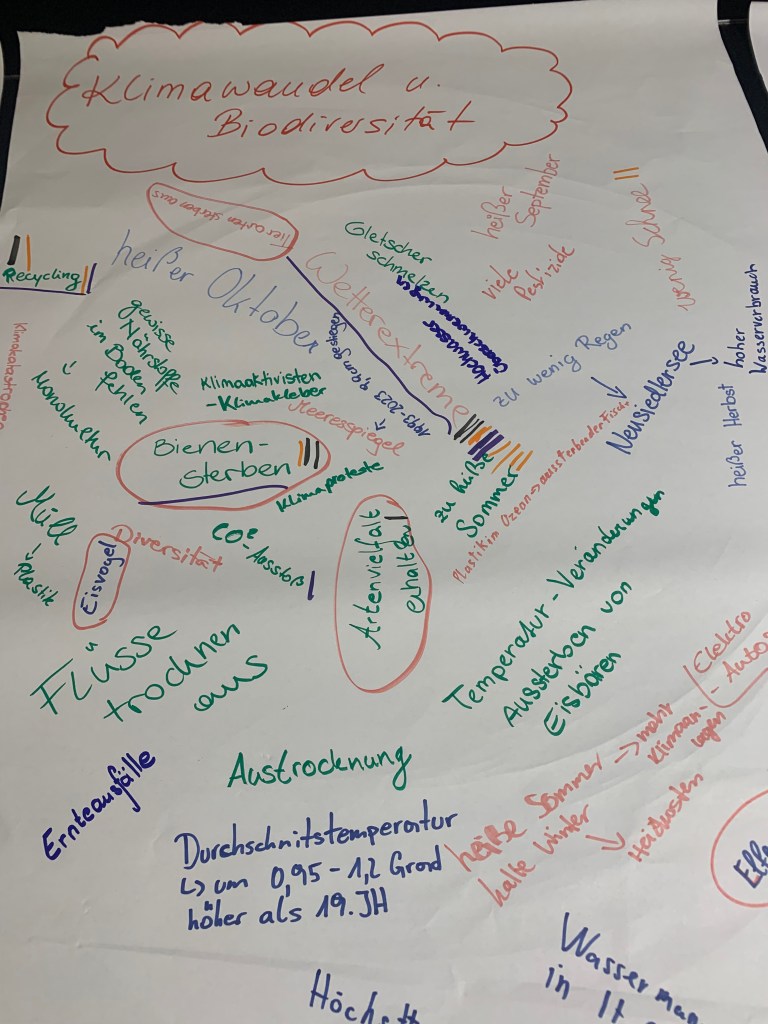 Klimawandel u.
Biodiversität
Tierarten sterben aus
Recycling
heißer Oktober
Wetterextreme
Gletscher
schmelzen
Hochwasser
heißer
September
viele
Pestizide
wenig Schnee
hoher
Wasserverbrauch
heißer Herbst
Neusiedlersee
zu wenig Regen
gewisse
Nährstoffe
im Boden
fehlen
Monokultur
Klimaaktivisten
- Klimakleber
Meeresspiegel
1993-2023 9,4cm gestiegen
Bienen-
sterben
Klimaproteste
zu heiße
Sommer
Plastik im Ozean → aussterbende Fische
Müll
Plastik
Eisvogel
Diversität
CO²-Ausstoß
Artenvielfalt
erhalten
Flüsse
trocknen
aus
Temperatur-Veränderungen
Aussterben von
Eisbären
Elektro
- Autos
Ernteausfälle
Austrocknung
heiße Sommer → mehr
Klimaan-
lagen
kalte Winter
Heizkosten
Durchschnitstemperatur
↳ um 0,95-1,2 Grad
höher als 19. JH
Wasserman
in It
Höchstt